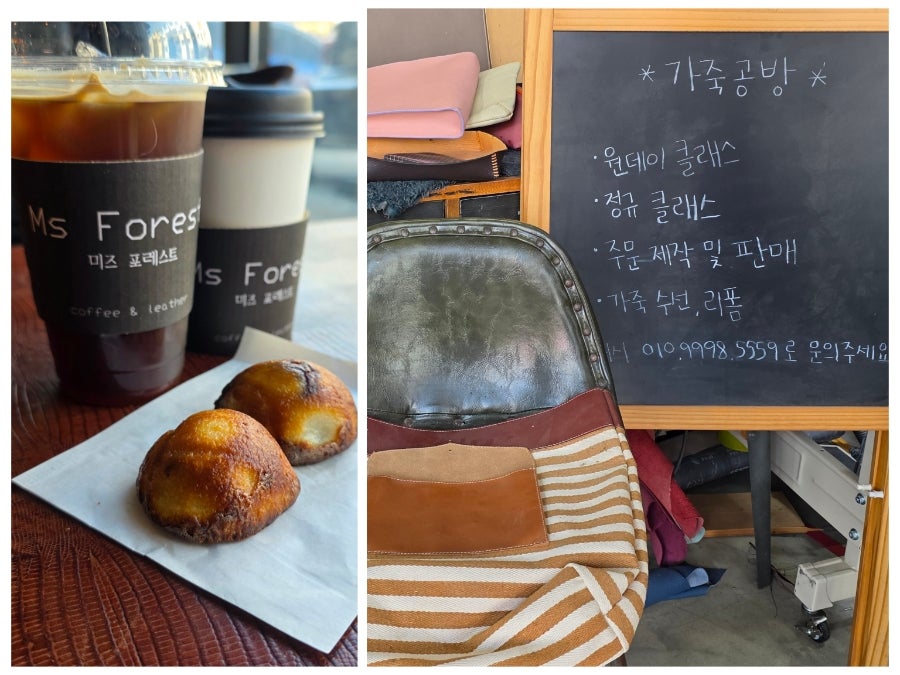 Ms Forest
미즈 포레스트
coffee & leather
Ms Fore
미즈 포레스트
coffee
* 가죽공방 *
· 원데이 클래스
· 정규 클래스
· 주문 제작 및 판매
· 가죽 수선, 리폼
010.9998.5559로 문의주세요